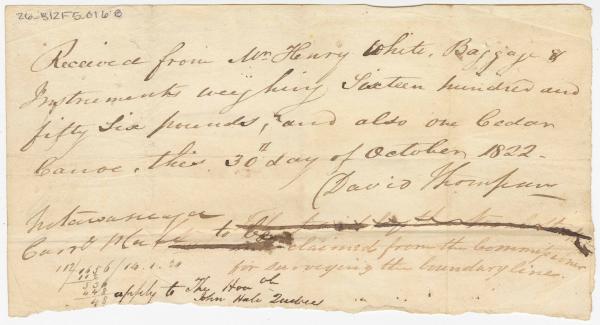 26-B12F5.016 ③
Received from Mr. Henry White, Baggage &
Instruments weighing Sixteen hundred and
fifty Six pounds, and also one Cedar
Canoe, this 30th day of October 1822.
David Thompson
Notawasaga
to be
claimed from the Commissioner
for surveying the boundary line.
112/1656/14.1.
112
536
448
apply to The Honble
John Hale Quebec